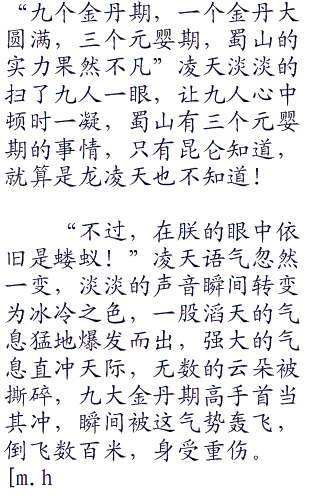 “九个金丹期，一个金丹大
圆满，三个元婴期，蜀山的
实力果然不凡”凌天淡淡的
扫了九人一眼，让九人心中
顿时一凝，蜀山有三个元婴
期的事情，只有昆仑知道，
就算是龙凌天也不知道！
“不过，在朕的眼中依
旧是蝼蚁！”凌天语气忽然
一变，淡淡的声音瞬间转变
为冰冷之色，一股滔天的气
息猛地爆发而出，强大的气
息直冲天际，无数的云朵被
撕碎，九大金丹期高手首当
其冲，瞬间被这气势轰飞，
倒飞数百米，身受重伤。
[m.h